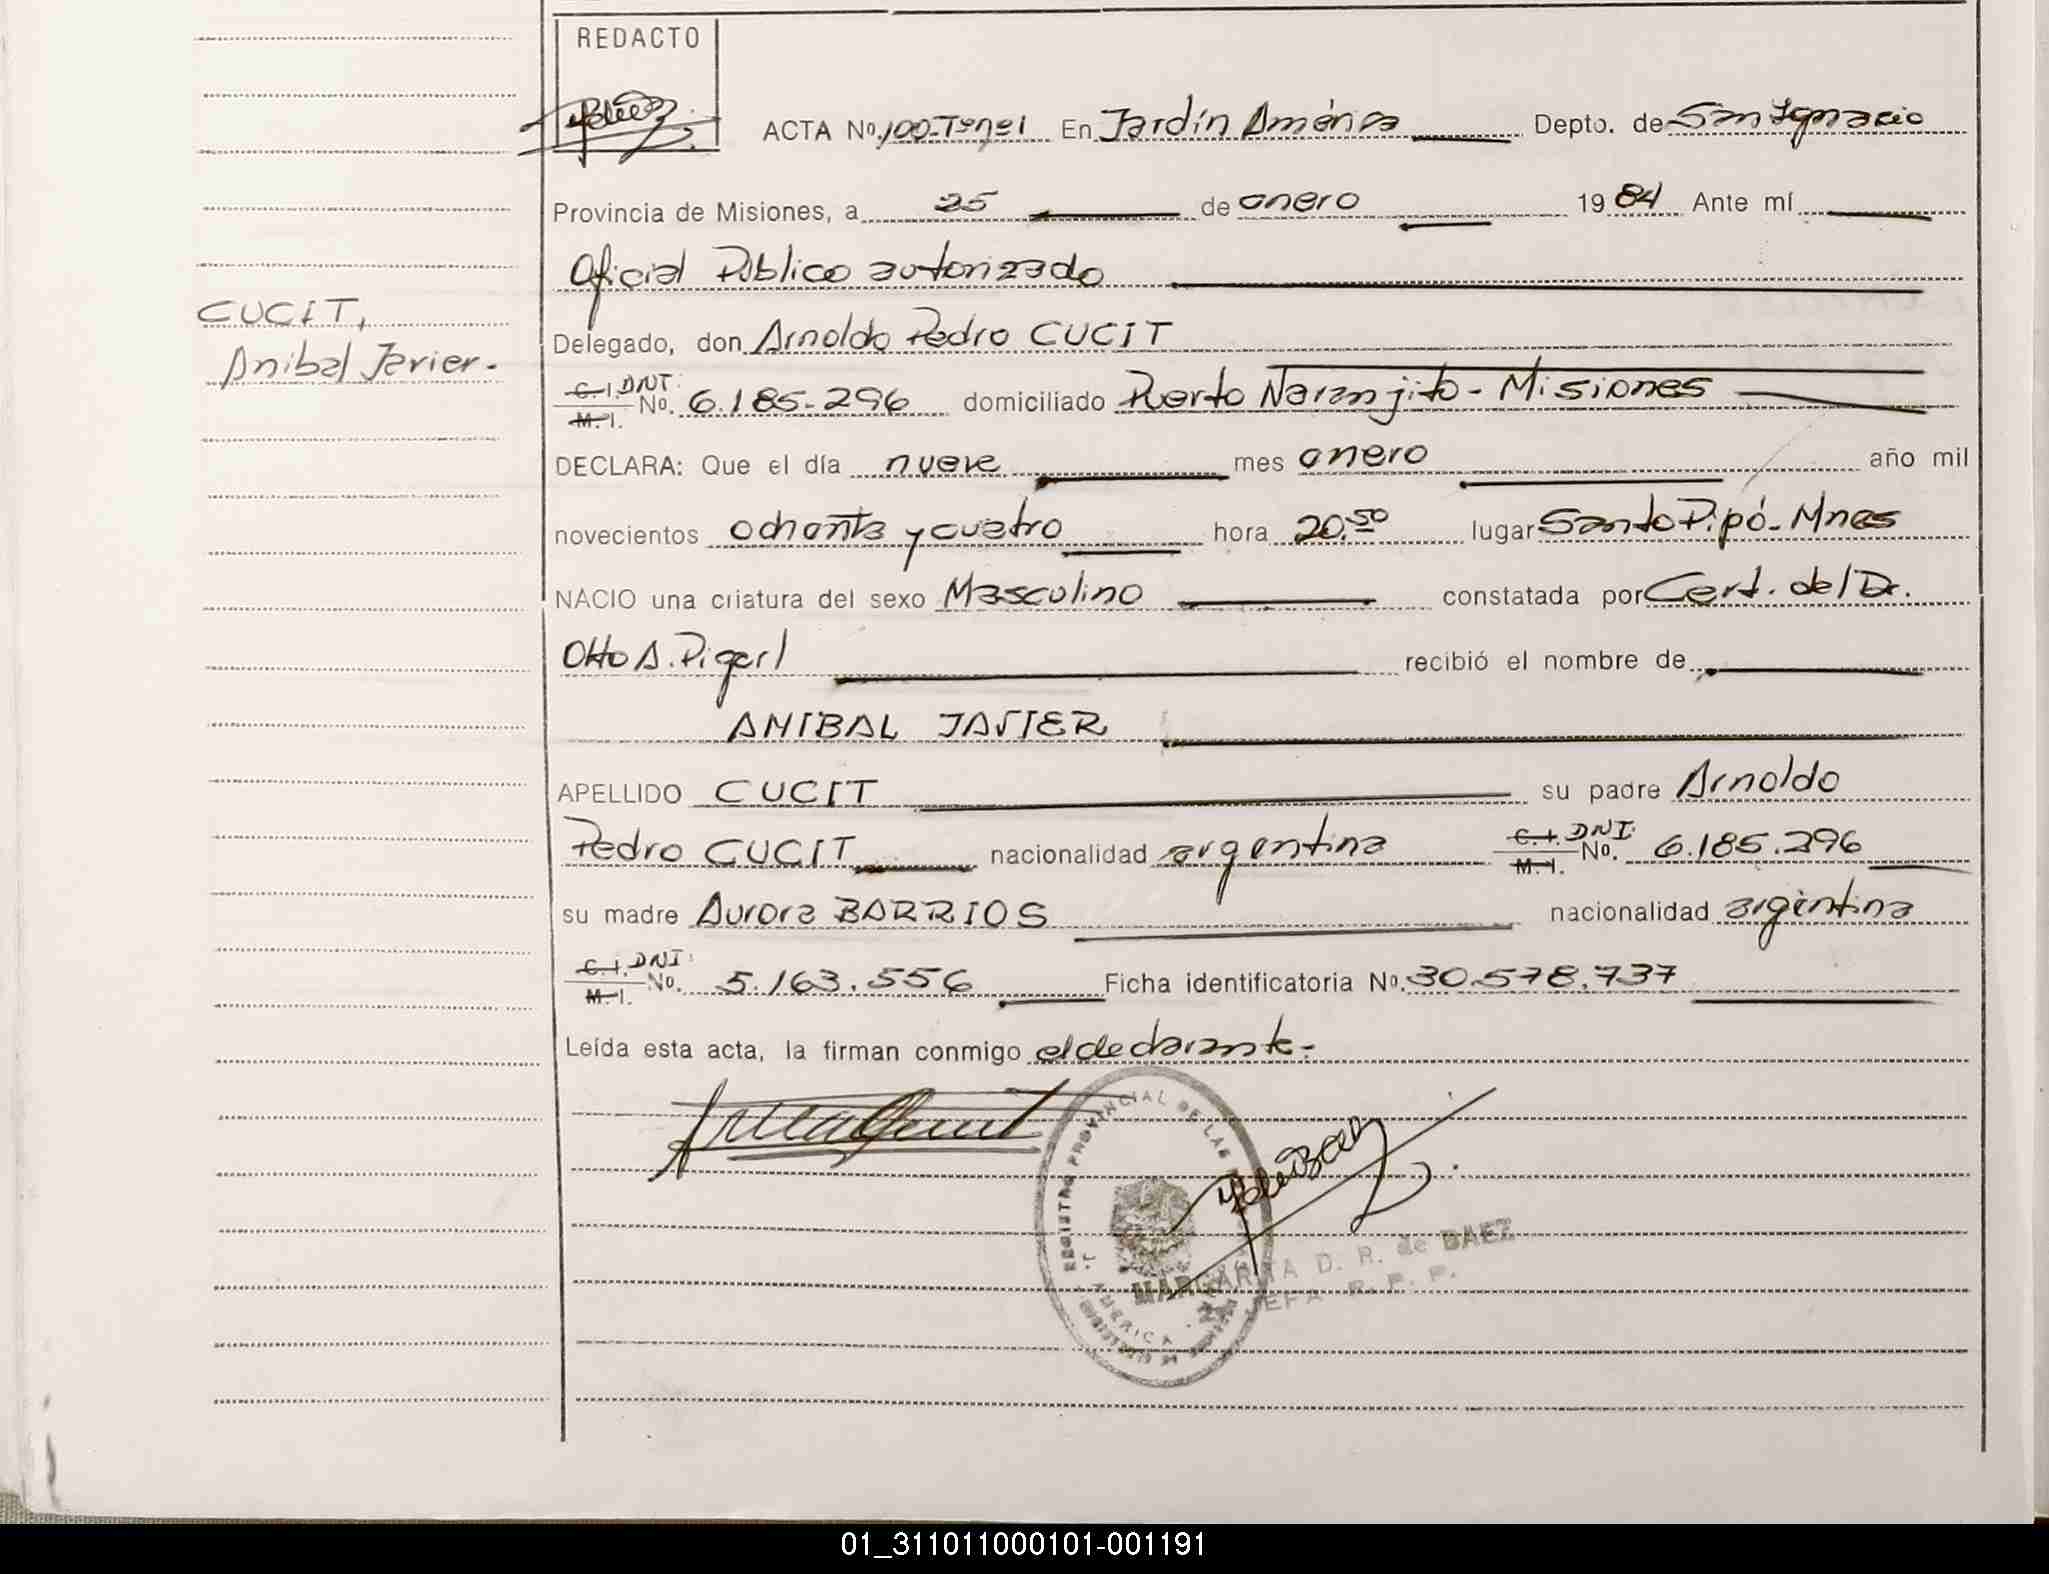 REDACTO
ACTA No. 100-Tº nº 1 En Jardín América Depto. de San Ignacio
Provincia de Misiones, a 25 de enero 1984 Ante mí
Oficial Público autorizado
CUCIT,
Delegado, don Arnoldo Pedro CUCIT
Anibal Javier.-
C.I. DNI: M.I. No. 6.185.296 domiciliado Puerto Naranjito - Misiones
DECLARA: Que el día nueve mes enero año mil
novecientos ochenta y cuatro hora 20.50 lugar Santo Pipó - Mnes
NACIO una criatura del sexo Masculino constatada por Cert. del Dr.
Otto A. Pigerl recibió el nombre de
ANIBAL JAVIER
APELLIDO CUCIT su padre Arnoldo
Pedro CUCIT nacionalidad argentina C.I. DNI: M.I. No. 6.185.296
su madre Aurora BARRIOS nacionalidad argentina
C.I. DNI: M.I. No. 5.163.556 Ficha identificatoria No. 30.578.737
Leída esta acta, la firman conmigo el declarante.-
REGISTRO PROVINCIAL DE LAS
AMERICA
MARGARITA D. R. de BAEZ
JEFA R. P. P.
01_311011000101-001191